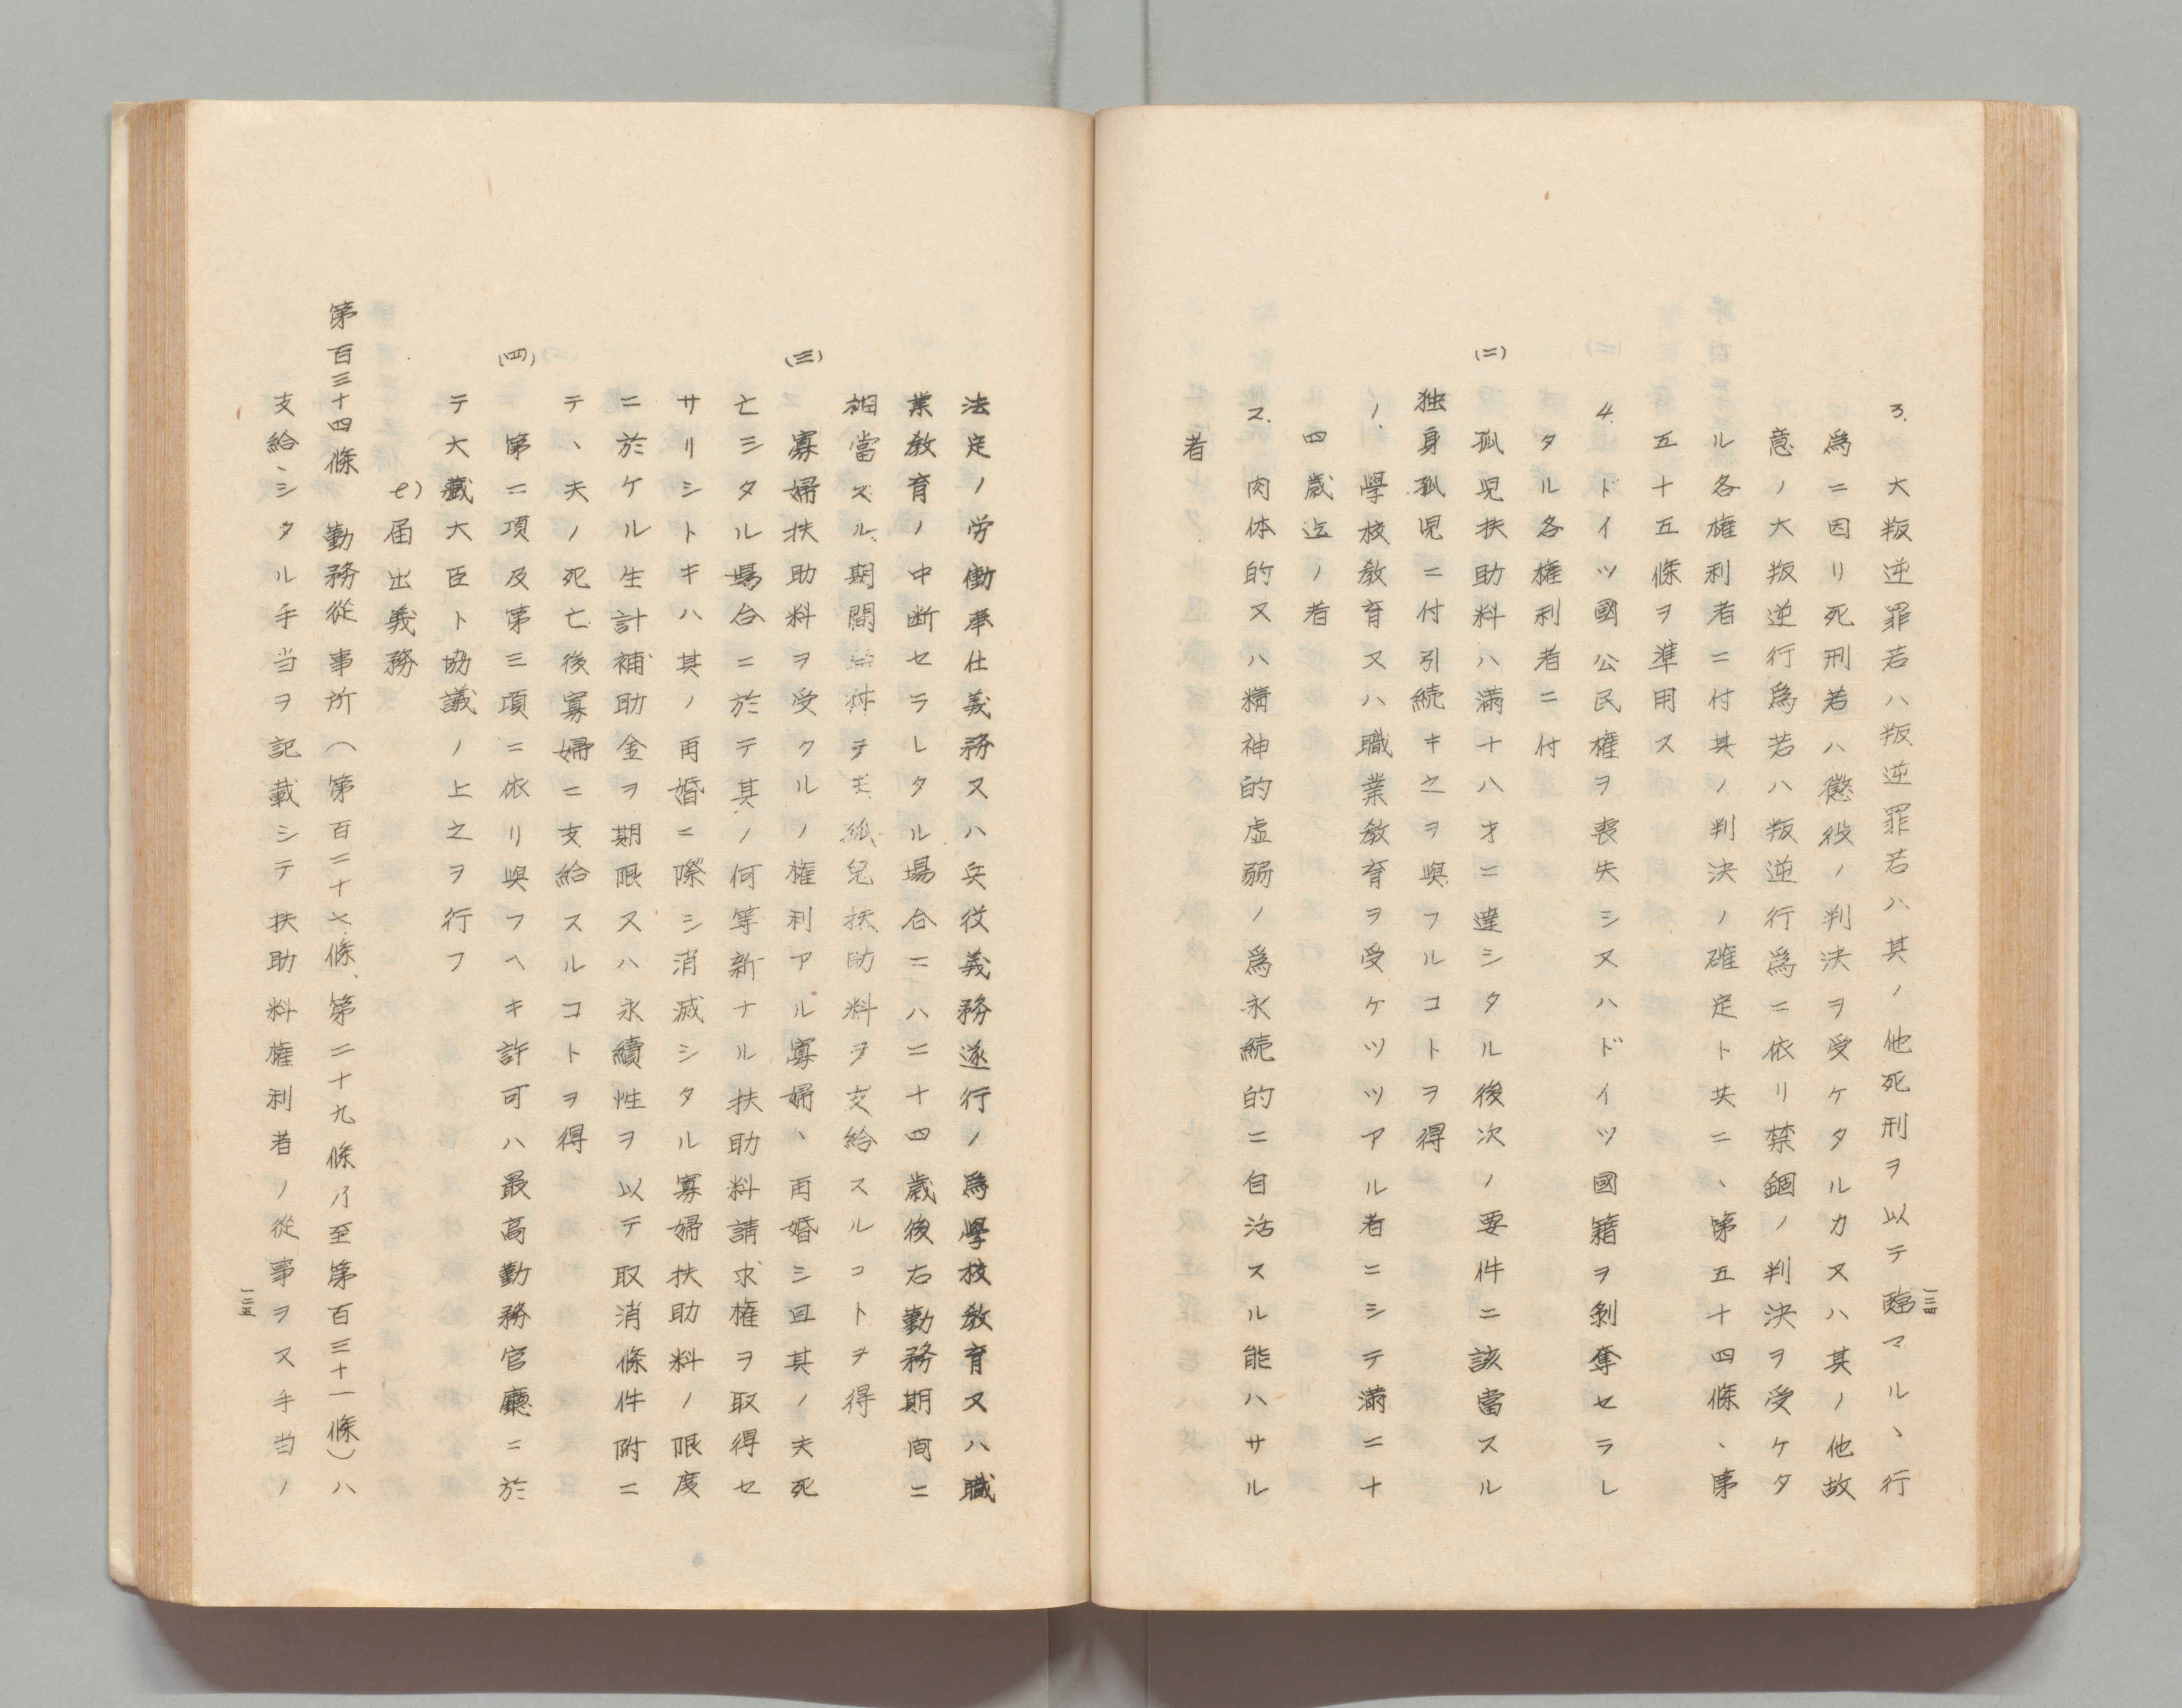 3. 大叛逆罪若ハ叛逆罪若ハ其ノ他死刑ヲ以テ臨マルヽ行
爲ニ因リ死刑若ハ懲役ノ判決ヲ受ケタルカ又ハ其ノ他故
意ノ大叛逆行爲若ハ叛逆行爲ニ依リ禁錮ノ判決ヲ受ケタ
ル各権利者ニ付其ノ判決ノ確定ト共ニ、第五十四條、第
五十五條ヲ準用ス
4. ドイツ國公民権ヲ喪失シ又ハドイツ國籍ヲ剝奪セラレ
タル各権利者ニ付
(二) 孤児扶助料ハ満十八才ニ達シタル後次ノ要件ニ該當スル
独身孤児ニ付引続キ之ヲ與フルコトヲ得
1. 學校教育又ハ職業教育ヲ受ケツツアル者ニシテ満二十
四歳迄ノ者
2. 肉体的又ハ精神的虚弱ノ爲永続的ニ自活スル能ハサル
者
一三四
法定ノ労働奉仕義務又ハ兵役義務遂行ノ爲學校教育又ハ職
業教育ノ中断セラレタル場合ニハ二十四歳後右勤務期間ニ
相當スル期間 テモ孤兒扶助料ヲ支給スルコトヲ得
(三) 寡婦扶助料ヲ受クルノ権利アル寡婦、再婚シ且其ノ夫死
亡シタル場合ニ於テ其ノ何等新ナル扶助料請求権ヲ取得セ
サリシトキハ其ノ再婚ニ際シ消滅シタル寡婦扶助料ノ限度
ニ於ケル生計補助金ヲ期限又ハ永續性ヲ以テ取消條件附ニ
テ、夫ノ死亡後寡婦ニ支給スルコトヲ得
(四) 第二項及第三項ニ依リ與フヘキ許可ハ最高勤務官廳ニ於
テ大藏大臣ト協議ノ上之ヲ行フ
e) 届出義務
第百三十四條 勤務從事所(第百二十七條、第二十九條乃至第百三十一條)ハ
支給シタル手当ヲ記載シテ扶助料権利者ノ從事ヲス手当ノ
一三五